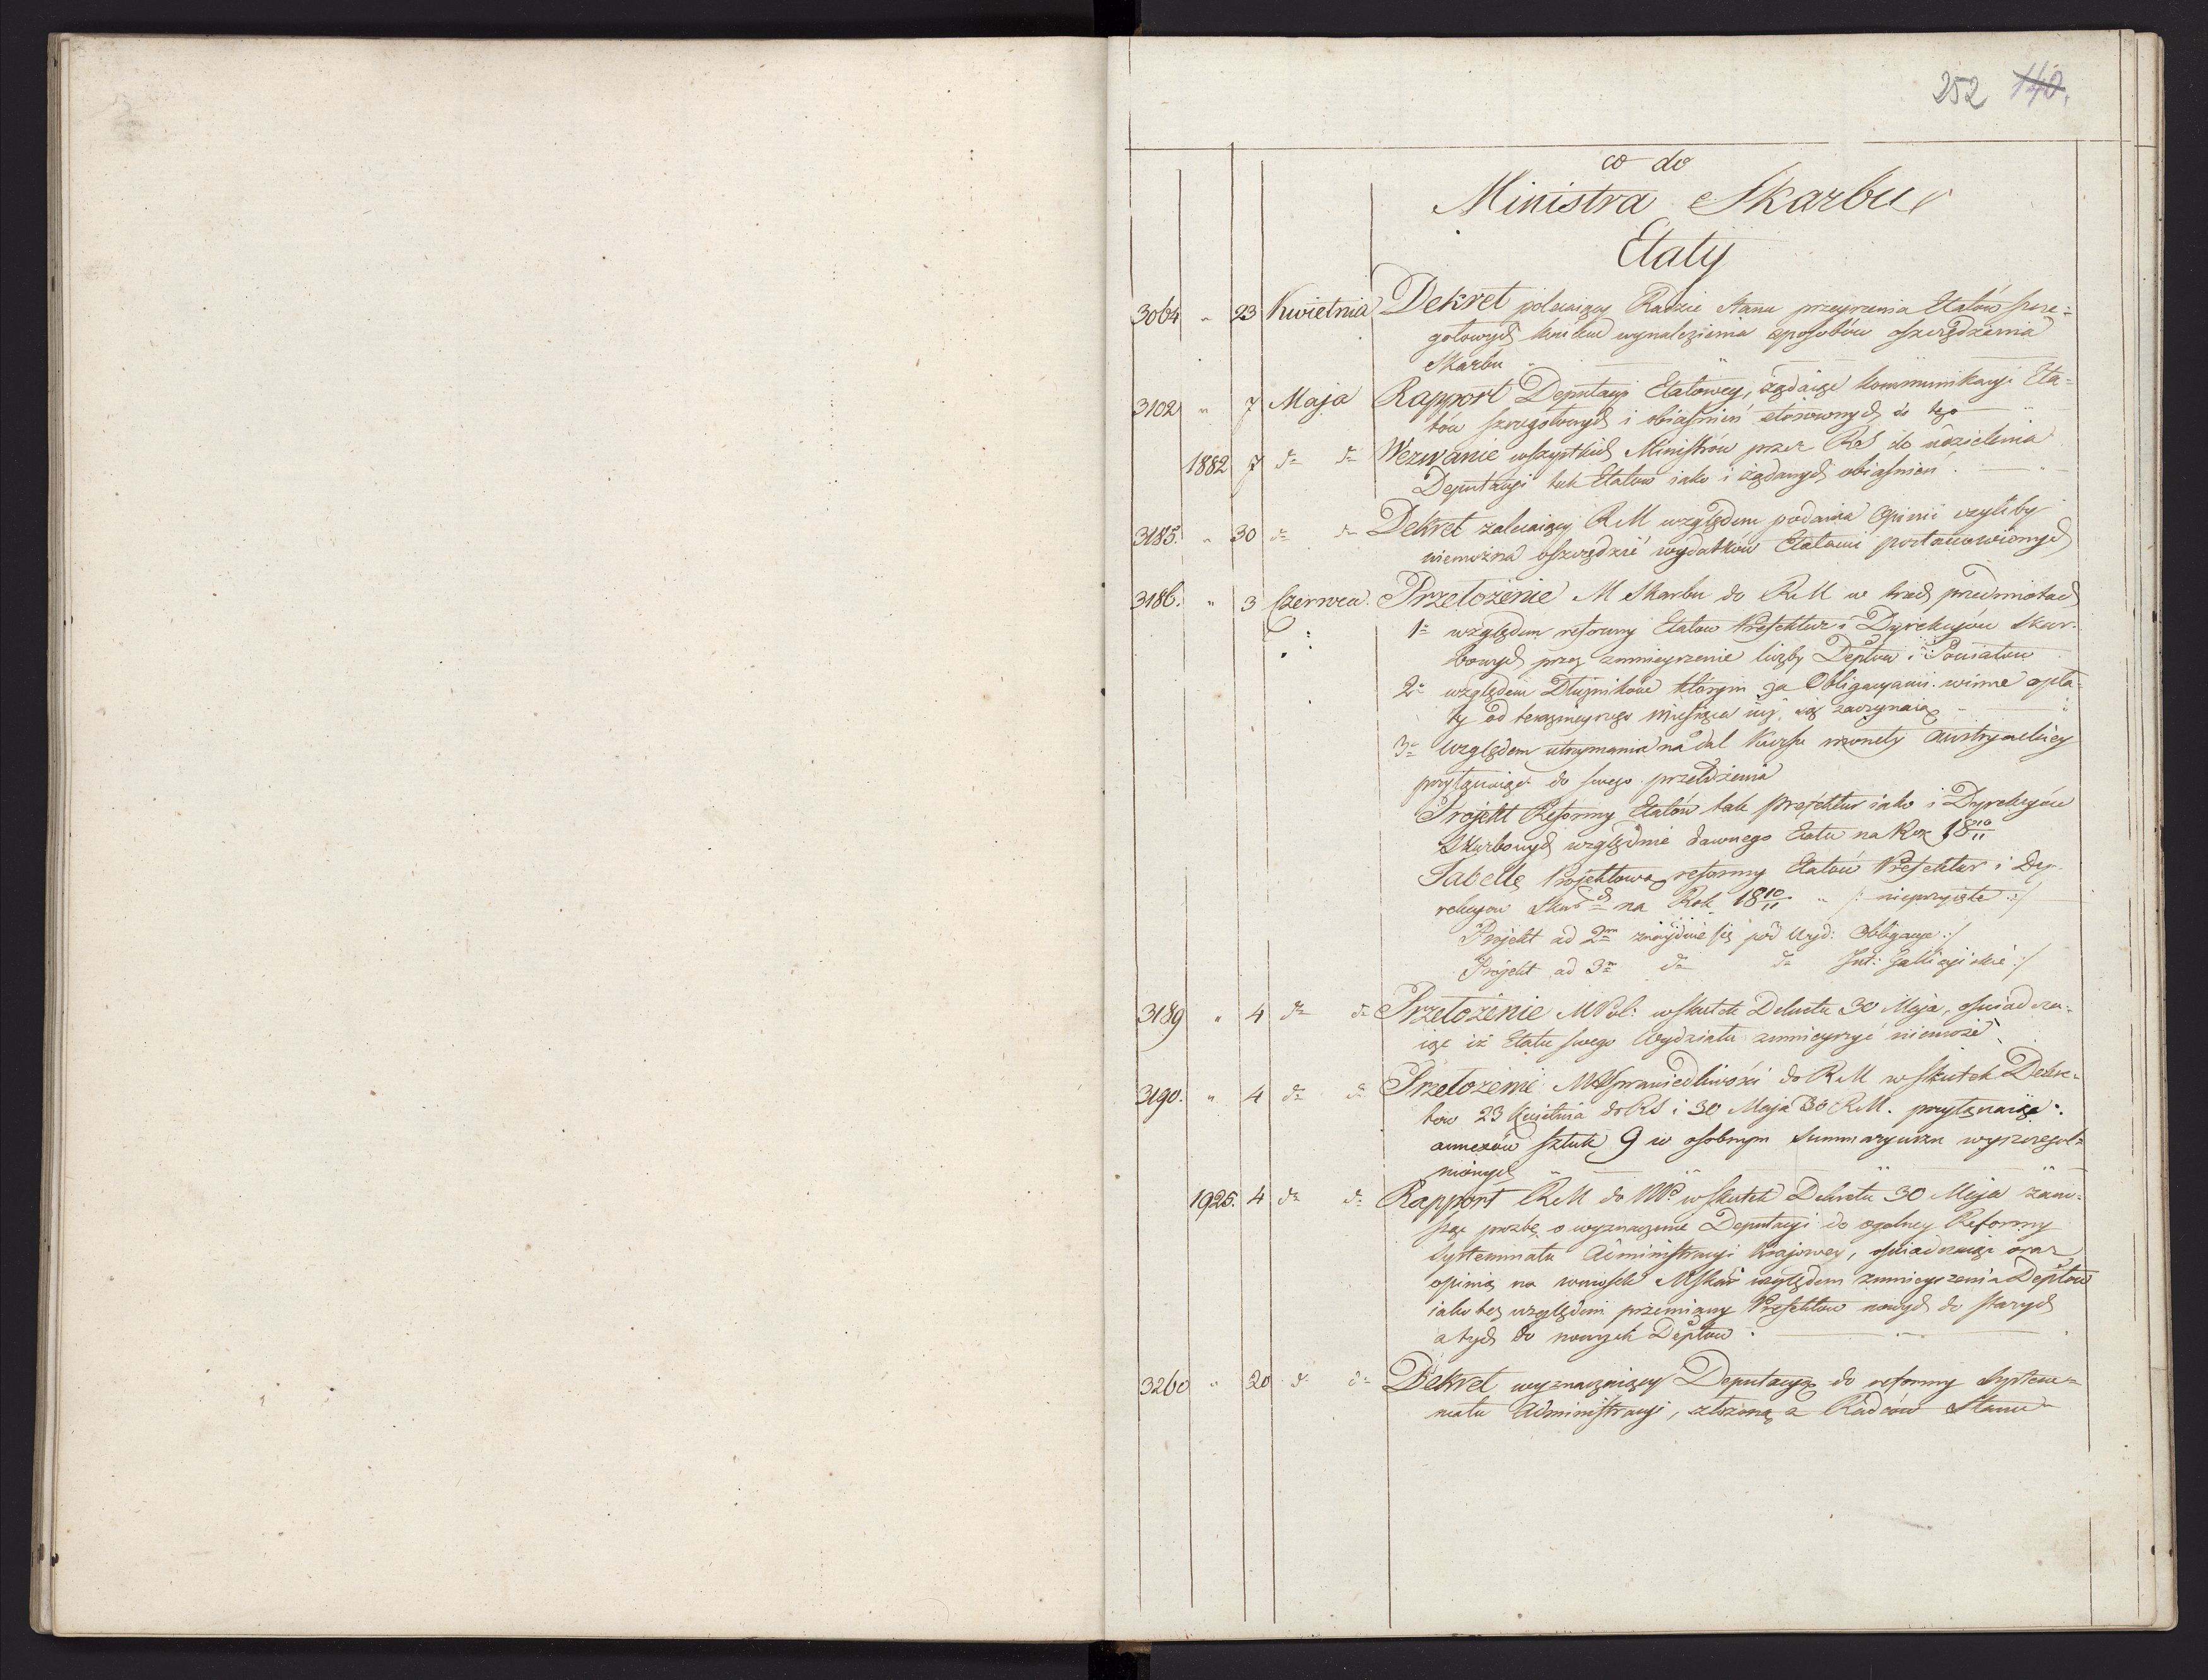 252 140.
co do
Ministra Skarbu
Etaty
3064 „ 23 Kwietnia Dekret polecaiący Radzie Stanu przeyrzenia Etatów szcze-
gołowych ku wynalezienia sposobów oszczędzenia
Skarbu
3102 „ 7 Maja Rapport Deputacyi Etatowey, żądaiące kommunikacyi Eta-
tów szczegołowych i obiaśnień stosownych do tego
1882 7 do do Wezwanie wszystkich Ministrów przez RS do udzielenia
Deputacyi tak Etatów iako i żądanych obiaśnień
3185. „ 30 do do Dekret zalecaiący RM względem podania Opinii czyliby
niemożna oszczędzić wydatków Etatami postanowionych
3186. „ 3 Czerwca. Przełożenie M Skarbu do RM w trzech przedmiotach
1o względem reformy Etatow Prefektur i Dyrekcyów Skar-
bowych przez zmnieyszenie liczby Deptow i Powiatow
2o względem Dłużników którym za Obligacyami winne opła-
ty od teraznieyszego Miesiąca iuż się zaczynaią
3o Względem utrzymania na dal kursu monety Austryackiey
przyłączaiąc do swego przełożenia
Projekt Reformy Etatów tak Prefektur iako i Dyrekcyów
Skarbowych względnie dawnego Etatu na Rok 18 10/11
Tabellę Projektową reformy Etatów Prefektur i Dy-
rekcyow Skarbch na Rok 18 10/11 „ /: nieprzyięte :/
Projekt ad 2m znayduie się pod Wyd: Obligacye :/
Projekt ad 3m do do Int: Gallicyiskie :/
3189 „ 4 do do Przełożenie MPol: w skutek Dekretu 30 Maja, oświadcza-
iąc iż Etatu swego Wydziału zmnieyszyć niemoże
3190. „ 4 do do Przełożenie MSprawiedliwości do RM w skutek Dekre-
tow 23 Kwietnia do RS i 30 Maja do RM. przyłączaiąc
annexów sztuk 9 w osobnym Summaryuszu wyszczegól-
nionych
1925. 4 do do Rapport RM do w skutek Dekretu 30 Maja zano-
sząc prozbę o wyznaczenie Deputacyi do ogolney Reformy
Systemmatu Administracyi Kraiowey, oświadczaiąc oraz
opinią na wniosek MSkar względem zmnieyszenia Deptow
iako też względem przemiany Prefektow nowych do starych
a tych do nowych Deptow
3260 „ 20 do do Dekret wyznaczaiący Deputacyą do reformy System-
matu Administracyi, złożoną z Radców Stanu